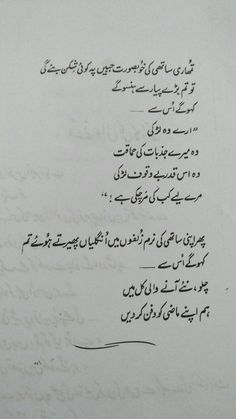 تمھاری ساتھی کی خوبصورت جبیں پہ کوئی شکن بنے گی
تو تم بڑے پیار سے ہنسو گے
کہو گے اُس سے ——
"ارے وہ لڑکی
وہ میرے جذبات کی حماقت
وہ اس قدر بے وقوف لڑکی
مرے لیے کب کی مر چکی ہے!"
پھر اپنی ساتھی کی نرم زلفوں میں اُنگلیاں پھیرتے ہُوئے تم
کہو گے اُس سے ——
چلو، نئے آنے والی کل میں
ہم اپنے ماضی کو دفن کر دیں